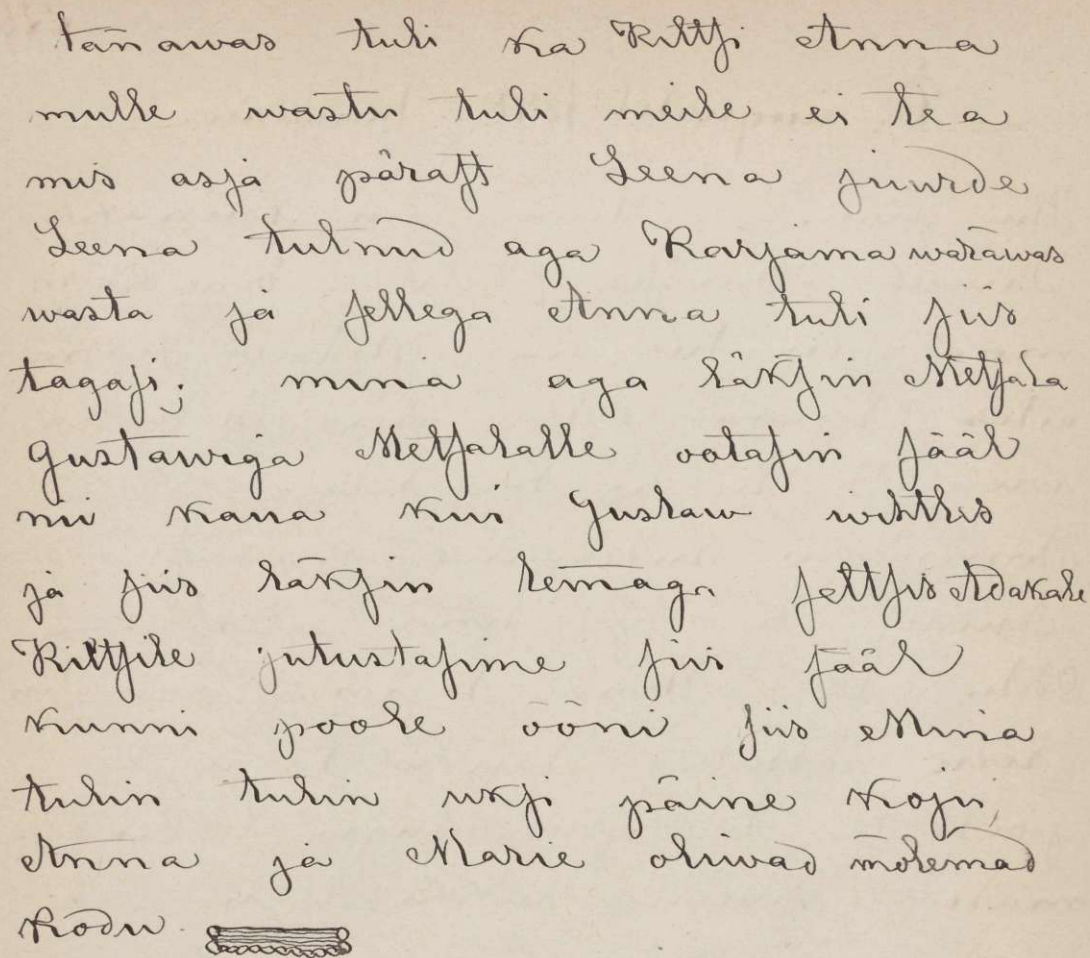 tänawas tuli ka Kiltsi Anna
mulle wastu tuli meile ei tea
mis asja pärast Leena juurde
Leena tulnud aga Karjama wärawas
wasta ja sellega Anna tuli siis
tagasi; mina aga läksin Metsala
Gustawiga Metsalalle ootasin sääl
nii kaua kui Gustaw wihtles
ja siis läksin temaga seltsis Adakale
Kiltsile jutustasime siis sääl
kunni poole ööni siis Mina
tulin tulin uksi päine koju,
Anna ja Marie oliwad mõlemad
kodu.